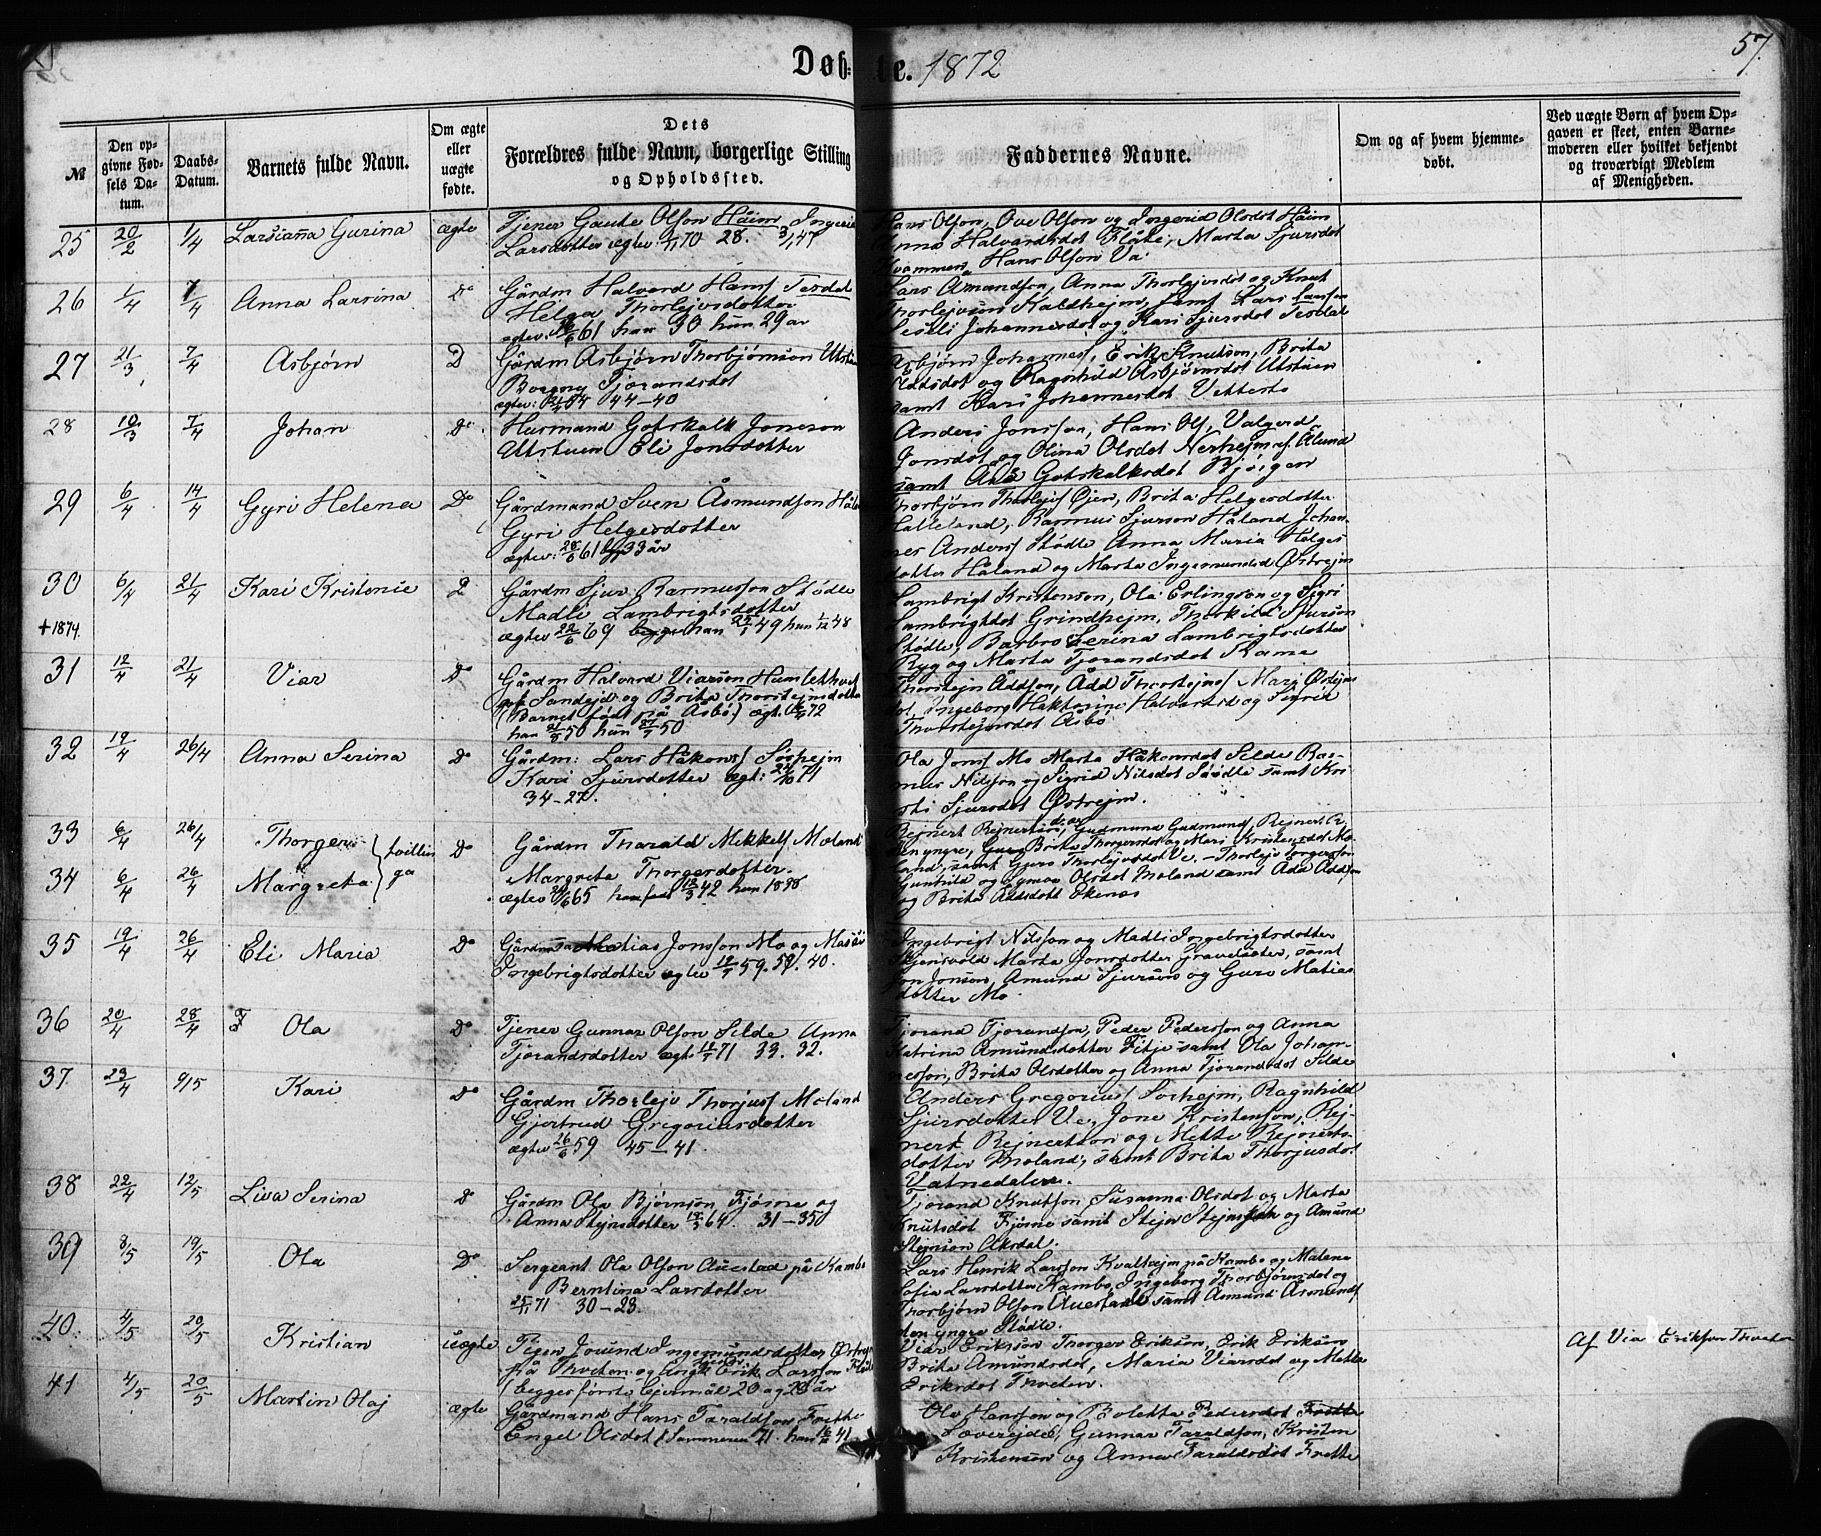 Døbte. 1872
57.
№
Den opgivne Fødsels Datum.
Daabs-Datum.
Barnets fulde Navn.
Om ægte eller uægte fødte.
Dets
Forældres fulde Navn, borgerlige Stilling
og Opholdssted.
Faddernes Navne.
Om og af hvem hjemmedøbt.
Ved uægte Børn af hvem Opgaven er skeet, enten Barnemoderen eller hvilket bekjendt og troværdigt Medlem af Menigheden.
25 20/2 1/4 Larsianna Gurina ægte Tjener Gaute Olson Håim Ingerid
Larsdotter ægtev: 70 28.
Hans Olson, Ove Olson og Ingerid Olsdot Håim
Anna Halvardsdot Flåte, Marta Sjursdot
Kvammen Hans Olson Va
26 1/4 1/4 Anna Larsina Do Gårdm Halvard Hans Tesdal
Helga Thorlejvsdotter
ægtev: 61 han 30 hun 29 år
Lars Amundson, Anna Thorlejvsdot og Knut
Thorlejvson Kaldhejm, samt Lars Larson
Johannesdot og Kari Sjursdot Tesdal
27 21/3 7/4 Asbjørn D Gårdm Asbjørn Thorbjørnson Utstuen
Borgny Tjorandsdot
ægtev: 54 44–40
Asbjørn Johannes, Erik Knutson, Brita
Oddsdot og Ragnhild Asbjørnsdot Utstuen
samt Kari Johannesdot Vettestø
28 10/3 7/4 Johan Do Husmand Gotskalk Joneson
Utstuen Eli Jonsdotter
Anders Jonson, Hans Ols, Valgerd
Jonsdot og Olina Olsdot Nerhejm
samt Ada Gotskalksdot Bjørgen
29 6/4 14/4 Gyri Helena Do Gårdmand Sven Åsmundson Håland
Gyri Helgesdotter
ægtev: 28/6 61 33 år
Thorbjørn Thorlejvs Øjen, Brita Helgesdotter
Halleland, Rasmus Sjurson Håland Johannes
Anders Stødle Anna Maria Helgesdotter
Håland og Marta Ingemundsd Østrejm
30 6/4 21/4 Kari Kristonie D Gårdm Sjur Rasmusson Stødle
+1874. Madli Lambrigtsdotter
ægtev 22/6 69 han 49 hun 48
Lambrigt Kristenson, Ola Erlingson og Sigri
Lambrigtsdot Grindhejm, Therkild Sjurson
Stødle, Barbro Serina Lambrigtsdotter
Ryg og Marta Tjorandsdot Kame
31 12/4 21/4 Viar Do Gårdm Halvard Viarson Humlekkvet
Sandejd og Brita Thorstejnsdotter
(Barnet født på Åsbø) ægt. 72
han 50 hun 50
Thorstejn Åddson, Ådd Thorstejns Mari Østejnsdot,
Ingeborg Håktorine Halvarsd og Sigrid
Thorstejnsdot Åsbø
32 19/4 26/4 Anna Serina Do Gårdm: Lars Håkons Sørhejm
Kari Sjursdotter ægt: 24/10 71
34–27.
Ola Jons Mo Marta Håkonsdot Silde Rasmus
Nilsson og Sigrid Nilsdot Stødle samt Kristi
Sjursdot Østrejm.
33 6/4 26/4 Thorger
34 6/4 26/4 Margreta
tvillinga
Do Gårdm Tharald Mikkels Moland
Margreta Thorgersdotter
ægtev 65 han født 12/3 42 hun 1838
Rejnert Rejnertson, Gudmund Gudmunds, Rejnert R.
den yngre, Brita Thorgersdot og Mari Kristensdot Moland,
samt Guro Thorlejvsdot Ve. – Thorlejv Torgerson
Gunhild og Olsdot Moland samt Ada Addson
og Brita Addsdot Ekenes
35 19/4 26/4 Eli Maria Do Gårdm Matias Jonsson Mo og
Ingebrigtsdotter ægtev 59. 58. 40.
Ingebrigt Nilsson og Madli Ingebrigtsdotter
Skjensvold Marta Jonsdotter Gravelseter, samt
Jon Jonson, Amund Sjurson og Guro Matiasdotter
Mo.
36 20/4 28/4 Ola Do Tjener Gunnar Olson Silde Anna
Tjorandsdotter ægt. 71 33. 32.
Tjorand Tjorandson, Peder Pederson og Anna
Katrina Amundsdotter Fitje samt Ola Johanneson,
Brita Olsdotter og Anna Tjorandsdot Silde
37. 23/4 9/5 Kari Do Gårdm Thorlejv Thorjus Moland
Gjertrud Gregoriusdotter
ægtev 26/6 59 45–41.
Anders Gregorius Sørhejm, Ragnhild
Sjursdotter Ve, Jone Kristenson, Rejnert
Rejnertson og Mette Rejnertsdotter
Moland, samt Brita Thorjusdot
Vatnedalen.
38 22/4 12/5 Liva Serina Do Gårdm Ola Bjørnson Fjøsne og
Anna Stejnsdotter 64. 31–35
Tjorand Knutson, Susanna Olsdot og Marta
Knutsdot Fjøsne samt Stejn Stejnson og Amund
Stejnson Aksdal.
39 8/5 19/5 Ola Do Sergeant Ola Olson Auestad på Kambe
Berntina Larsdotter
25/11 71 30–28.
Lars Henrik Larsson Kvaltvejn på Kambe og Malena
Sofia Larsdotter Kambo, Ingeborg Thorbjørnsdot og
Thorbjørn Olson Auestad samt Åsmund Åsmunds
den yngre Stødle.
40. 4/5 20/5 Kristian uægte Pigen Jorund Ingemundsdotter Østrejm
på Tveten og Ungk Erik Larsson
(begges første lejermål 20 og 23 år
Viar Erikson Thorger Erikson, Erik Erikson
Brita Amundsdot, Maria Viarsdot og Mette
Eriksdot Tveten.
Af Via Erikson Tveten
41 4/5 20/5 Martin Olaj ægte Gårdmand Hans Taraldson Frette
Engel Olsdot (Sommeren 71. han 41
Ola Hanson og Boletta Pedersdot Frette
Gunnar Taraldson, Kristen
Kristenson og Anna Taraldsdot Frette